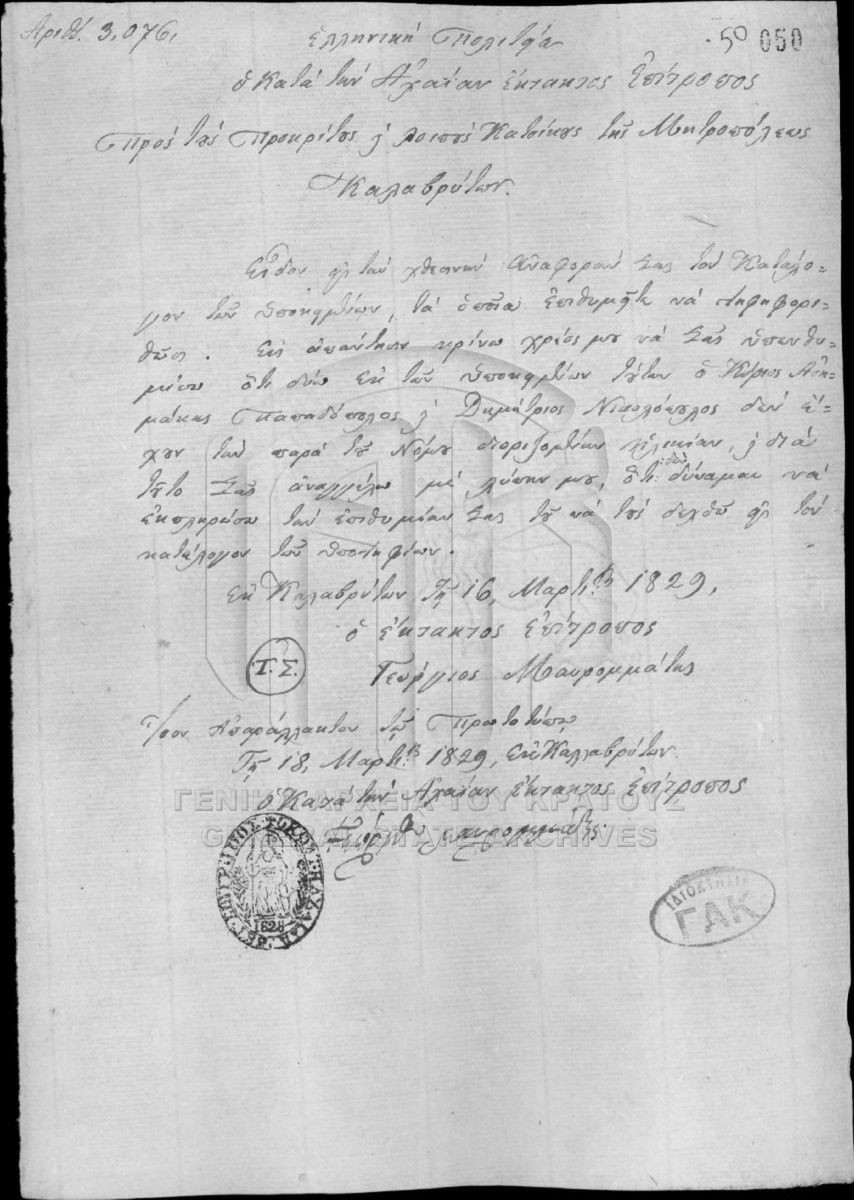 Ἀριθ. 3,076,
Ἑλληνικὴ Πολιτεία
50 050
ὁ Κατὰ τὴν Ἀχαΐαν Ἔκτακτος Ἐπίτροπος
Πρὸς τοὺς Προκρίτους ϗ λοιποὺς Κατοίκους τῆς Μητροπόλεως
Καλαβρύτων.
Εἶδον εἰς τὴν χθεσινὴν ἀναφοράν σας τὸν Κατάλο-
γον τῶν ὑποκειμένων, τὰ ὁποῖα ἐπιθυμεῖτε νὰ ψηφοφορι-
θῶσι. Εἰς ἀπάντησιν κρίνω χρέος μου νὰ σᾶς ὑπενθυ-
μίσω ὅτι δύω ἐκ τῶν ὑποκειμένων τούτων ὁ Κύριος Ἀση-
μάκης Παπαδόπουλος ϗ Δημήτριος Νικολόπουλος δὲν ἔ-
χουν τὴν παρὰ τοῦ Νόμου διοριζομένην ἡλικίαν, ϗ διὰ
τοῦτο σᾶς ἀναγγέλω μὲ λύπην μου, ὅτι δὲν δύναμαι νὰ
ἐκπληρώσω τὴν ἐπιθυμίαν σας τοῦ νὰ τοὺς δεχθῶ εἰς τὸν
κατάλογον τῶν ὑποψηφίων.
Ἐκ Καλαβρύτων τῇ 16, Μαρτίου 1829,
ὁ ἔκτακτος Ἐπίτροπος
Τ.Σ.
Γεώργιος Μαυρομμάτης
Ἴσον ἀπαράλλακτον τῷ Πρωτοτύπῳ
τῇ 18, Μαρτίου 1829, ἐκ Καλλαβρύτων
ὁ Κατὰ τὴν Ἀχαΐαν ἔκτακτος ἐπίτροπος
ΓΕΝΙΚΑ ΑΡΧΕΙΑ ΤΟΥ ΚΡΑΤΟΥΣ
GENERAL STATE ARCHIVES
1828
ΙΔΙΟΚΤΗΣΙΑ
ΓΑΚ